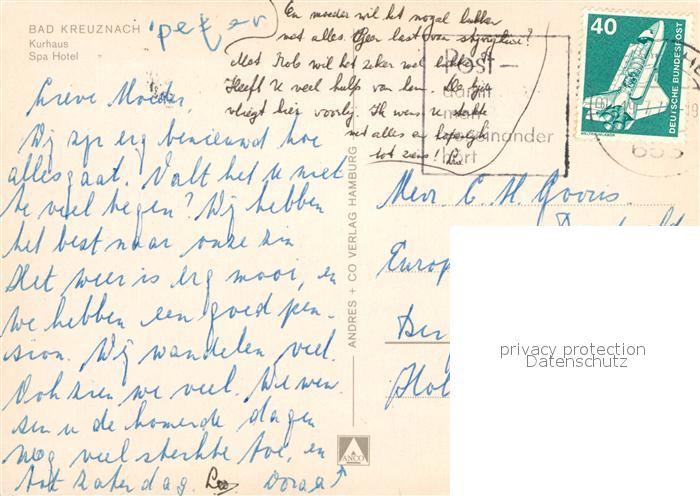 BAD KREUZNACH
Kurhaus
Spa Hotel
Lieve Moeder
Wij zijn erg benieuwd hoe
alles gaat. Valt het U niet
te veel tegen? Wij hebben
het best naar onze zin
Het weer is erg mooi, en
we hebben een goed pen-
sion. Wij wandelen veel.
Ook zien we veel. We wen-
sen U de komende dagen
nog veel sterkte toe, en
tot zaterdag. Leo Dora
En moeder wil het nogal lukken
met alles. Geen last van
Met Rob wil het zeker wel lukken?
Heeft U veel hulp van hem. De tijd
vliegt hier voorbij. Ik wens U sterkte
met alles en hopelijk
tot ziens! Leo
Post-
damit
man
voneinander
hört
40
DEUTSCHE BUNDESPOST
WELTRAUMLABOR
655
ANDRES + CO VERLAG HAMBURG
ANCO
Mevr C. H. Govers
Europ
Hol
privacy protection
Datenschutz